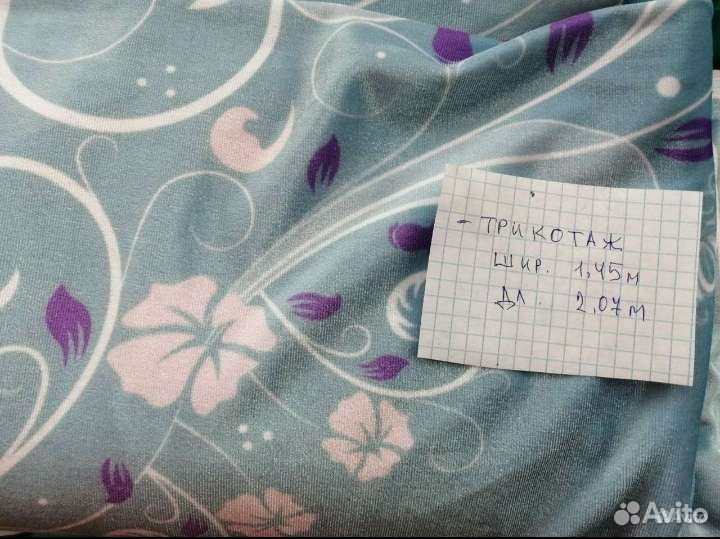 - ТРИКОТАЖ
ШИР. 1,45м
ДЛ. 2,07м
Avito